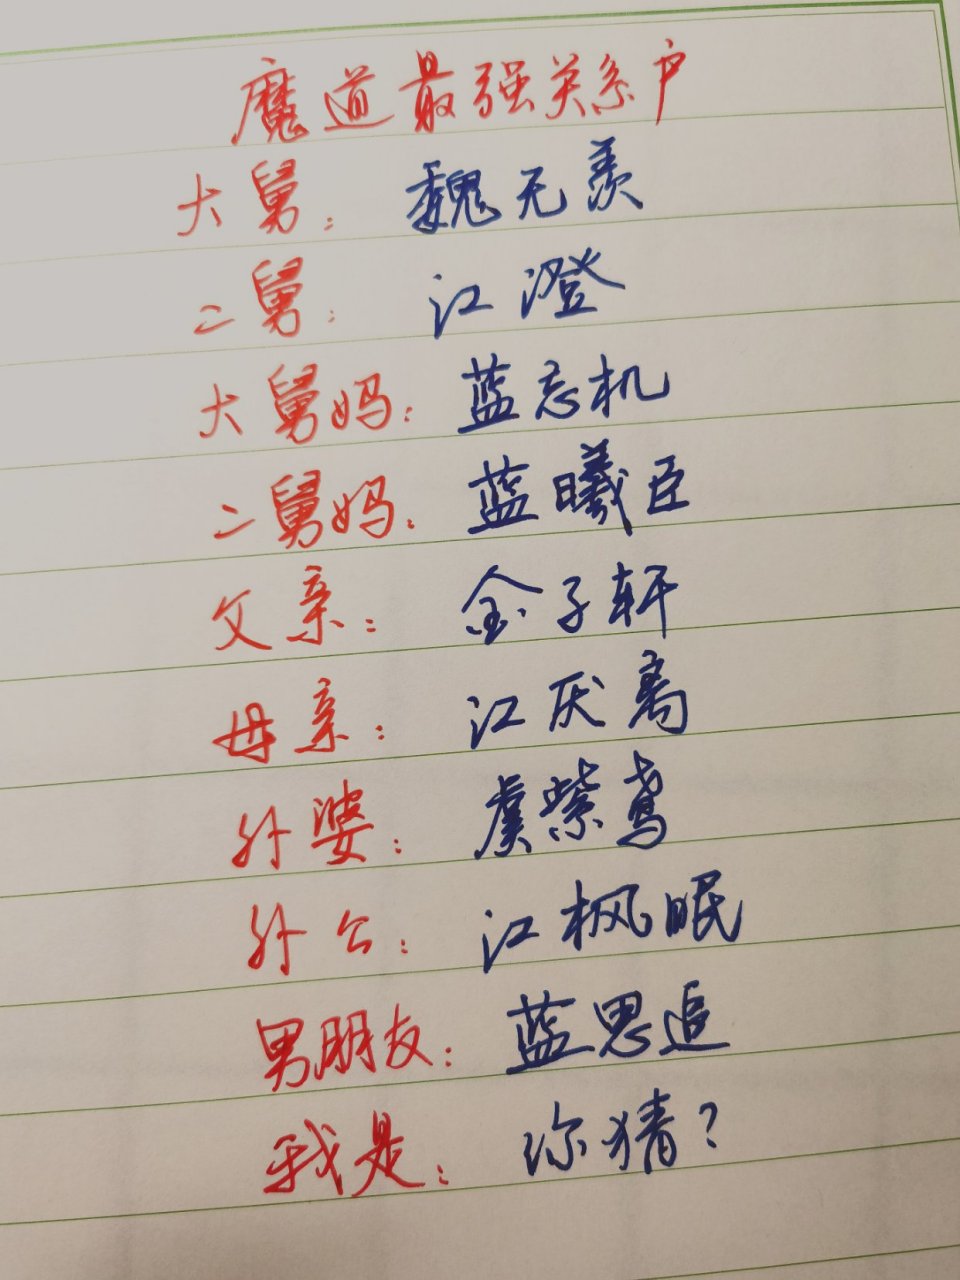 魔道最强关系户
大舅：魏无羡
二舅：江澄
大舅妈：蓝忘机
二舅妈：蓝曦臣
父亲：金子轩
母亲：江厌离
外婆：虞紫鸢
外公：江枫眠
男朋友：蓝思追
我是：你猜？